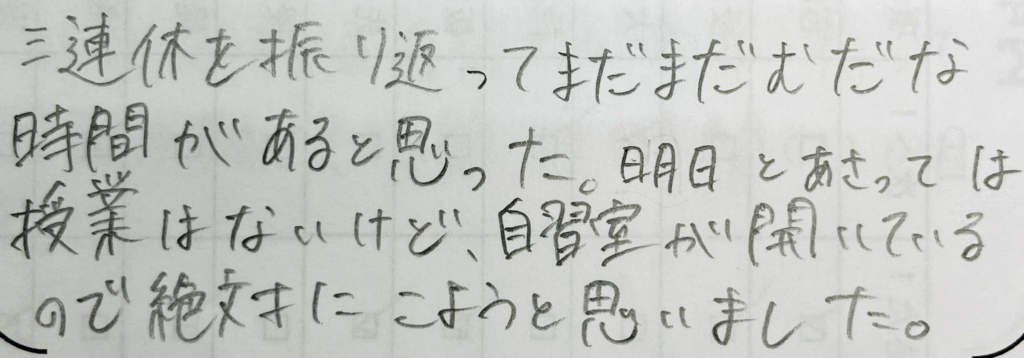 三連休を振り返ってまだまだむだな
時間があると思った。明日とあさっては
授業はないけど、自習室が開いている
ので絶対にこようと思いました。